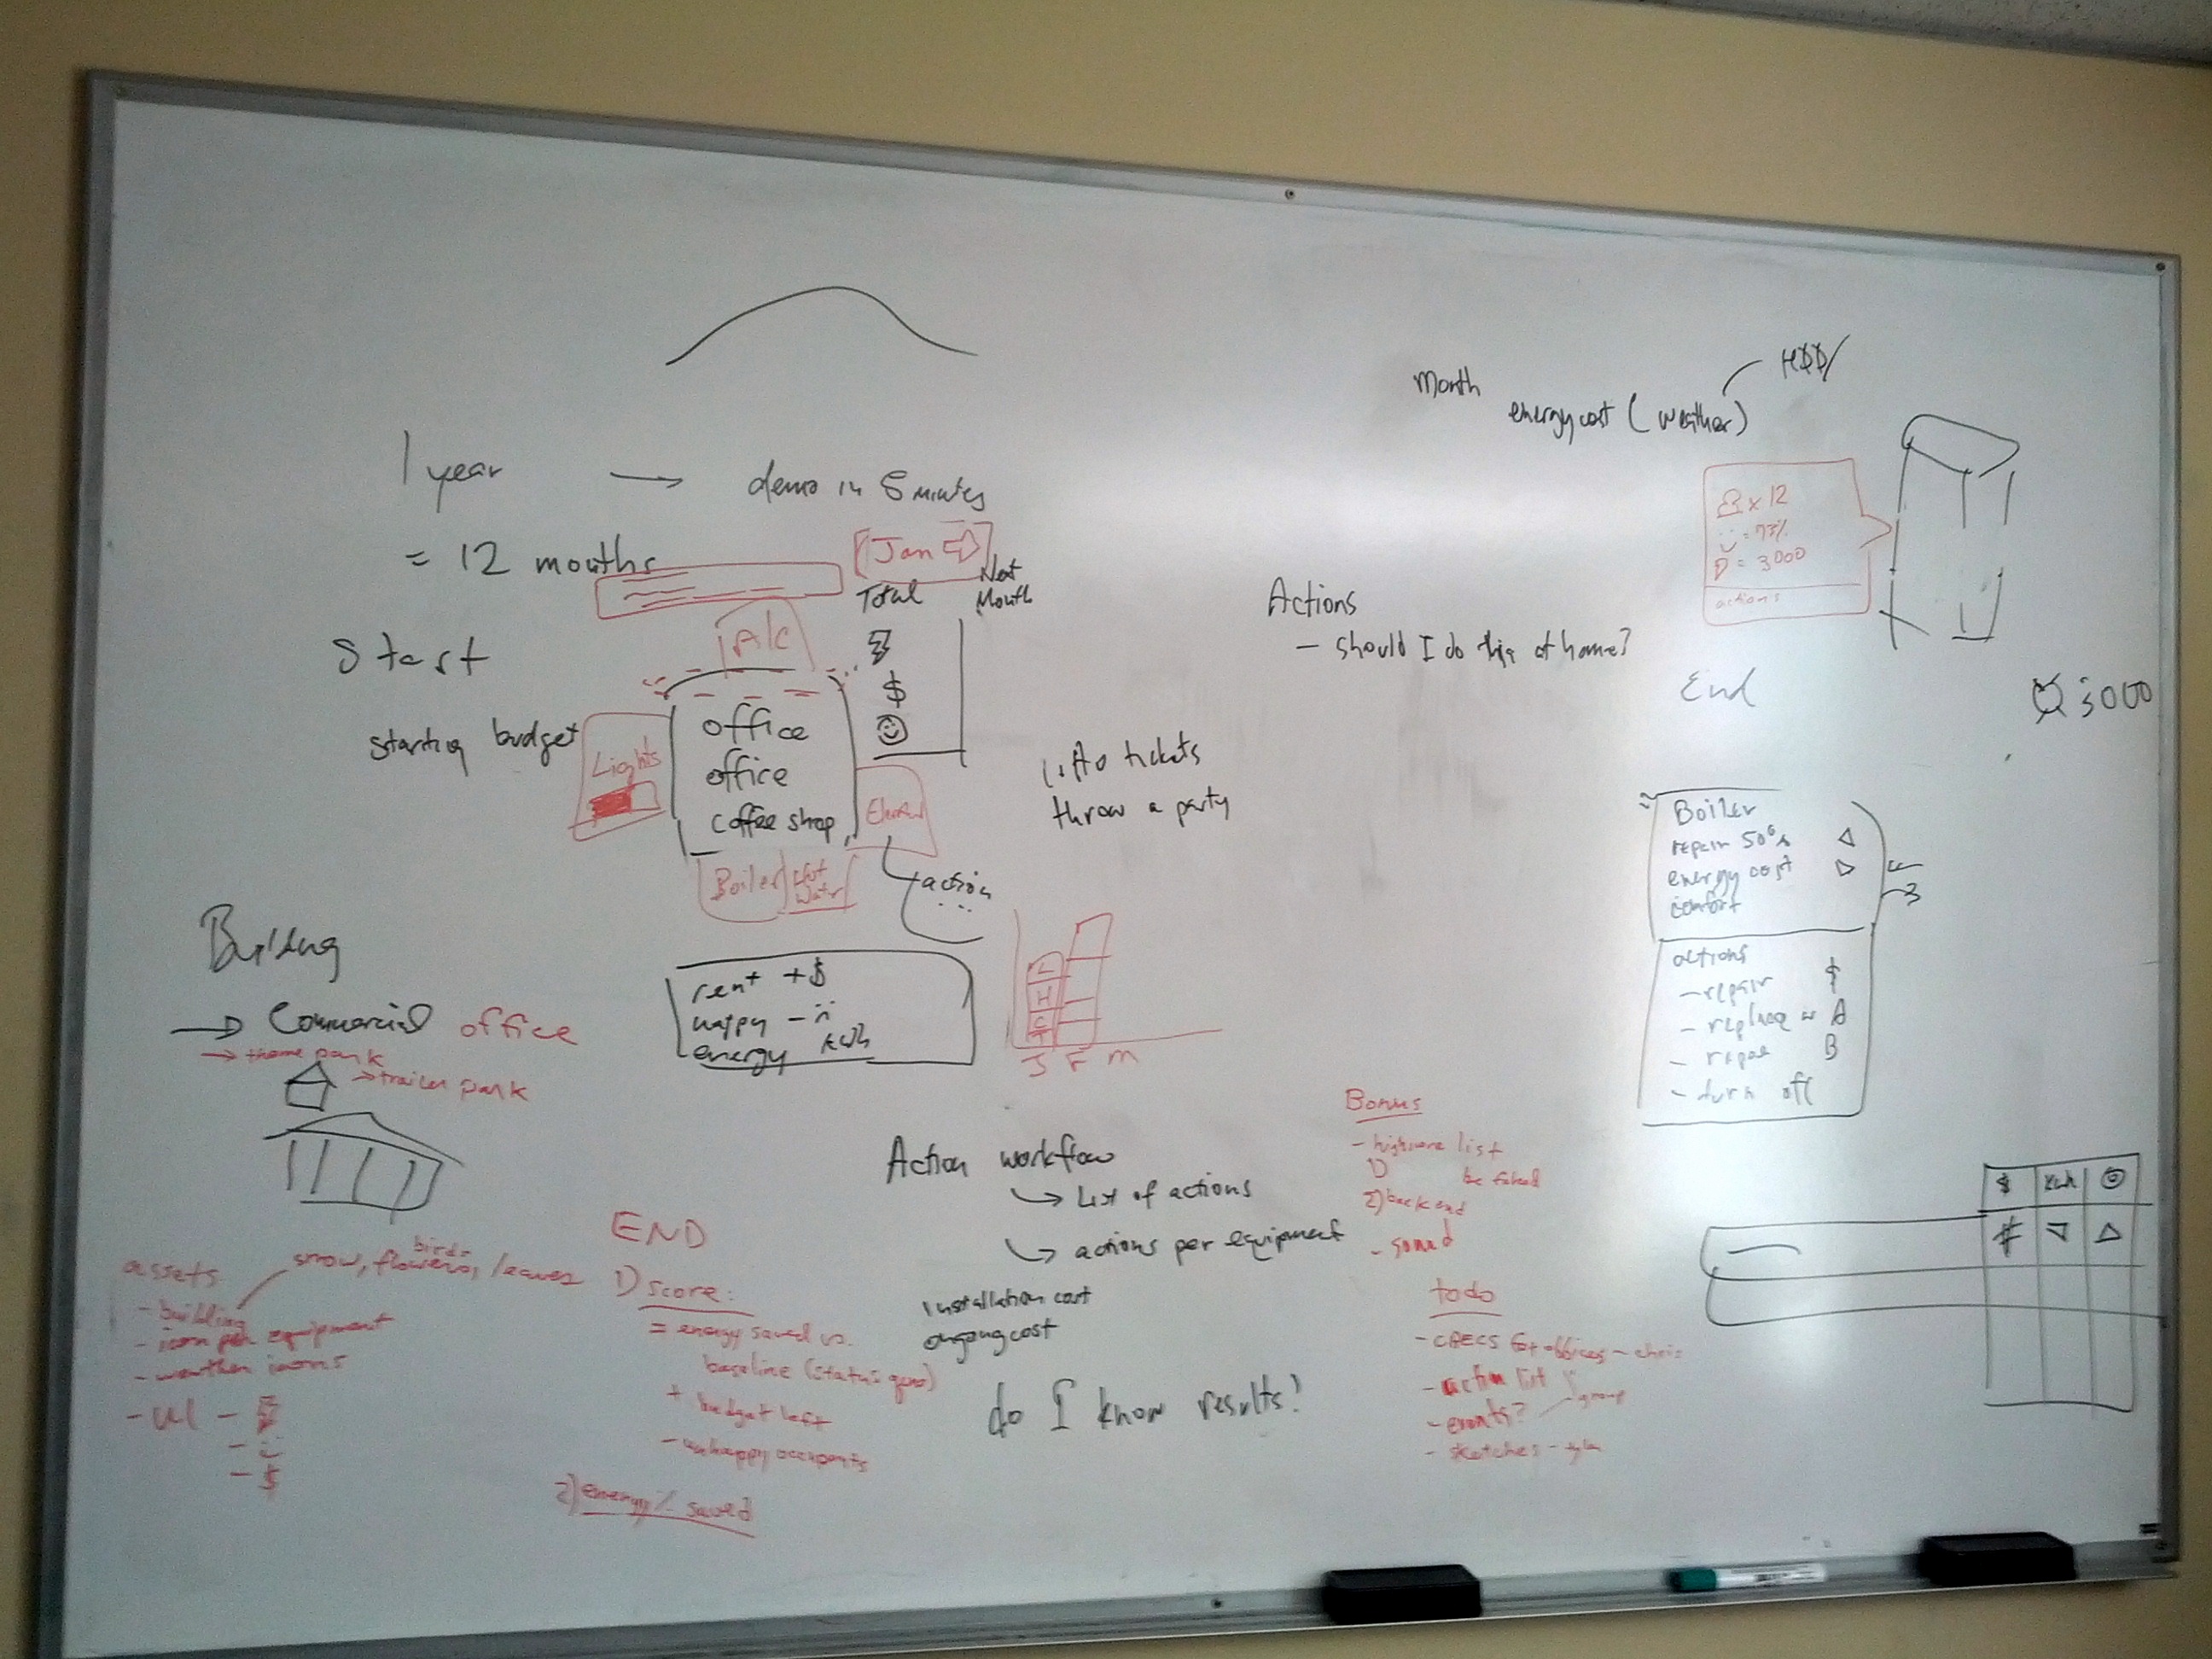 Month
energy cost (weather)
HDD/
1 year → demo in 5 minutes
= 12 months
[Jan ⇒]
Total
Next
Month
x 12
= 73%
= 3000
actions
Start
starting budget
A/C
$
office
office
coffee shop
Lights
Boiler
Hot
Water
action
...
Actions
- should I do this at home?
End
3000
tickets
throw a party
Boiler
repair 50%
energy cost
comfort
actions
- repair $
- replace w A
B
- turn off
Building
→ Commercial office
→ theme park
→ trailer park
rent +$
happy -
energy kwh
L
H
C
J F M
Action workflow
↳ List of actions
↳ actions per equipment
installation cost
ongoing cost
do I know results?
Bonus
- highscore list
1) be faked
2) back end
- sound
todo
- CBECS for offices - chris
- action list
- events? - group
- sketches -
$ kwh ☺
END
1) score:
= energy saved vs.
baseline (status quo)
+ budget left
- unhappy occupants
2) energy % saved
assets
snow, flowers, birds, leaves
- building
- icon per equipment
- weather icons
- UI -
- $